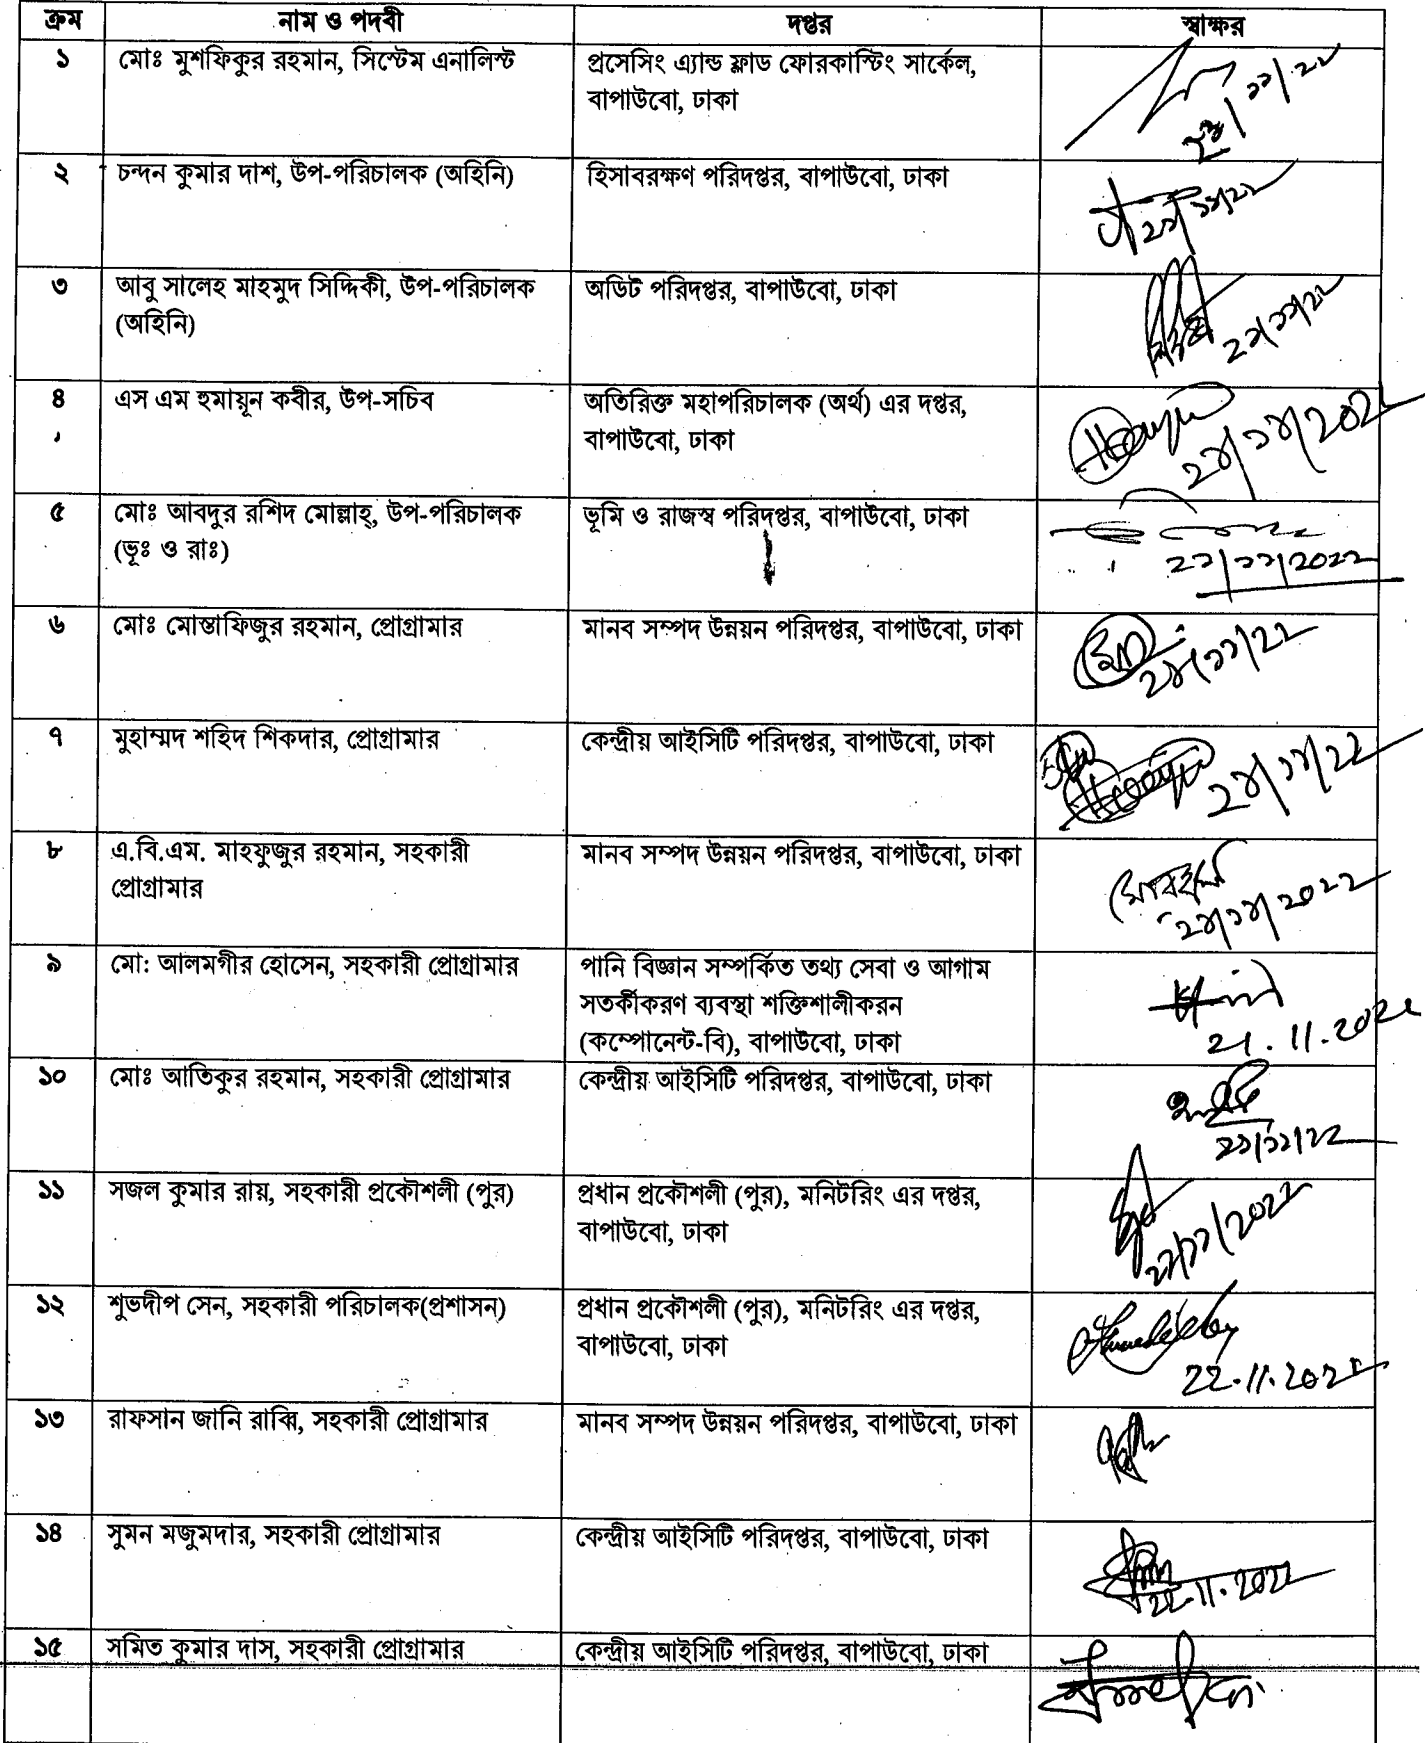 ক্রম নাম ও পদবী দপ্তর স্বাক্ষর
১ মোঃ মুশফিকুর রহমান, সিস্টেম এনালিস্ট প্রসেসিং এ্যান্ড ফ্লাড ফোরকাস্টিং সার্কেল,
বাপাউবো, ঢাকা
২ চন্দন কুমার দাশ, উপ-পরিচালক (অহিনি) হিসাবরক্ষণ পরিদপ্তর, বাপাউবো, ঢাকা
৩ আবু সালেহ মাহমুদ সিদ্দিকী, উপ-পরিচালক অডিট পরিদপ্তর, বাপাউবো, ঢাকা
(অহিনি)
৪ এস এম হুমায়ূন কবীর, উপ-সচিব অতিরিক্ত মহাপরিচালক (অর্থ) এর দপ্তর,
বাপাউবো, ঢাকা
৫ মোঃ আবদুর রশিদ মোল্লাহ্, উপ-পরিচালক ভূমি ও রাজস্ব পরিদপ্তর, বাপাউবো, ঢাকা
(ভূঃ ও রাঃ)
২২/১১/২০২২
৬ মোঃ মোস্তাফিজুর রহমান, প্রোগ্রামার মানব সম্পদ উন্নয়ন পরিদপ্তর, বাপাউবো, ঢাকা
৭ মুহাম্মদ শহিদ শিকদার, প্রোগ্রামার কেন্দ্রীয় আইসিটি পরিদপ্তর, বাপাউবো, ঢাকা
৮ এ.বি.এম. মাহফুজুর রহমান, সহকারী মানব সম্পদ উন্নয়ন পরিদপ্তর, বাপাউবো, ঢাকা
প্রোগ্রামার
৯ মো: আলমগীর হোসেন, সহকারী প্রোগ্রামার পানি বিজ্ঞান সম্পর্কিত তথ্য সেবা ও আগাম
সতর্কীকরণ ব্যবস্থা শক্তিশালীকরন
(কম্পোনেন্ট-বি), বাপাউবো, ঢাকা
21.11.2022
১০ মোঃ আতিকুর রহমান, সহকারী প্রোগ্রামার কেন্দ্রীয় আইসিটি পরিদপ্তর, বাপাউবো, ঢাকা
১১ সজল কুমার রায়, সহকারী প্রকৌশলী (পুর) প্রধান প্রকৌশলী (পুর), মনিটরিং এর দপ্তর,
বাপাউবো, ঢাকা
১২ শুভদীপ সেন, সহকারী পরিচালক(প্রশাসন) প্রধান প্রকৌশলী (পুর), মনিটরিং এর দপ্তর,
বাপাউবো, ঢাকা
22.11.2022
১৩ রাফসান জানি রাব্বি, সহকারী প্রোগ্রামার মানব সম্পদ উন্নয়ন পরিদপ্তর, বাপাউবো, ঢাকা
১৪ সুমন মজুমদার, সহকারী প্রোগ্রামার কেন্দ্রীয় আইসিটি পরিদপ্তর, বাপাউবো, ঢাকা
22.11.2022
১৫ সমিত কুমার দাস, সহকারী প্রোগ্রামার কেন্দ্রীয় আইসিটি পরিদপ্তর, বাপাউবো, ঢাকা